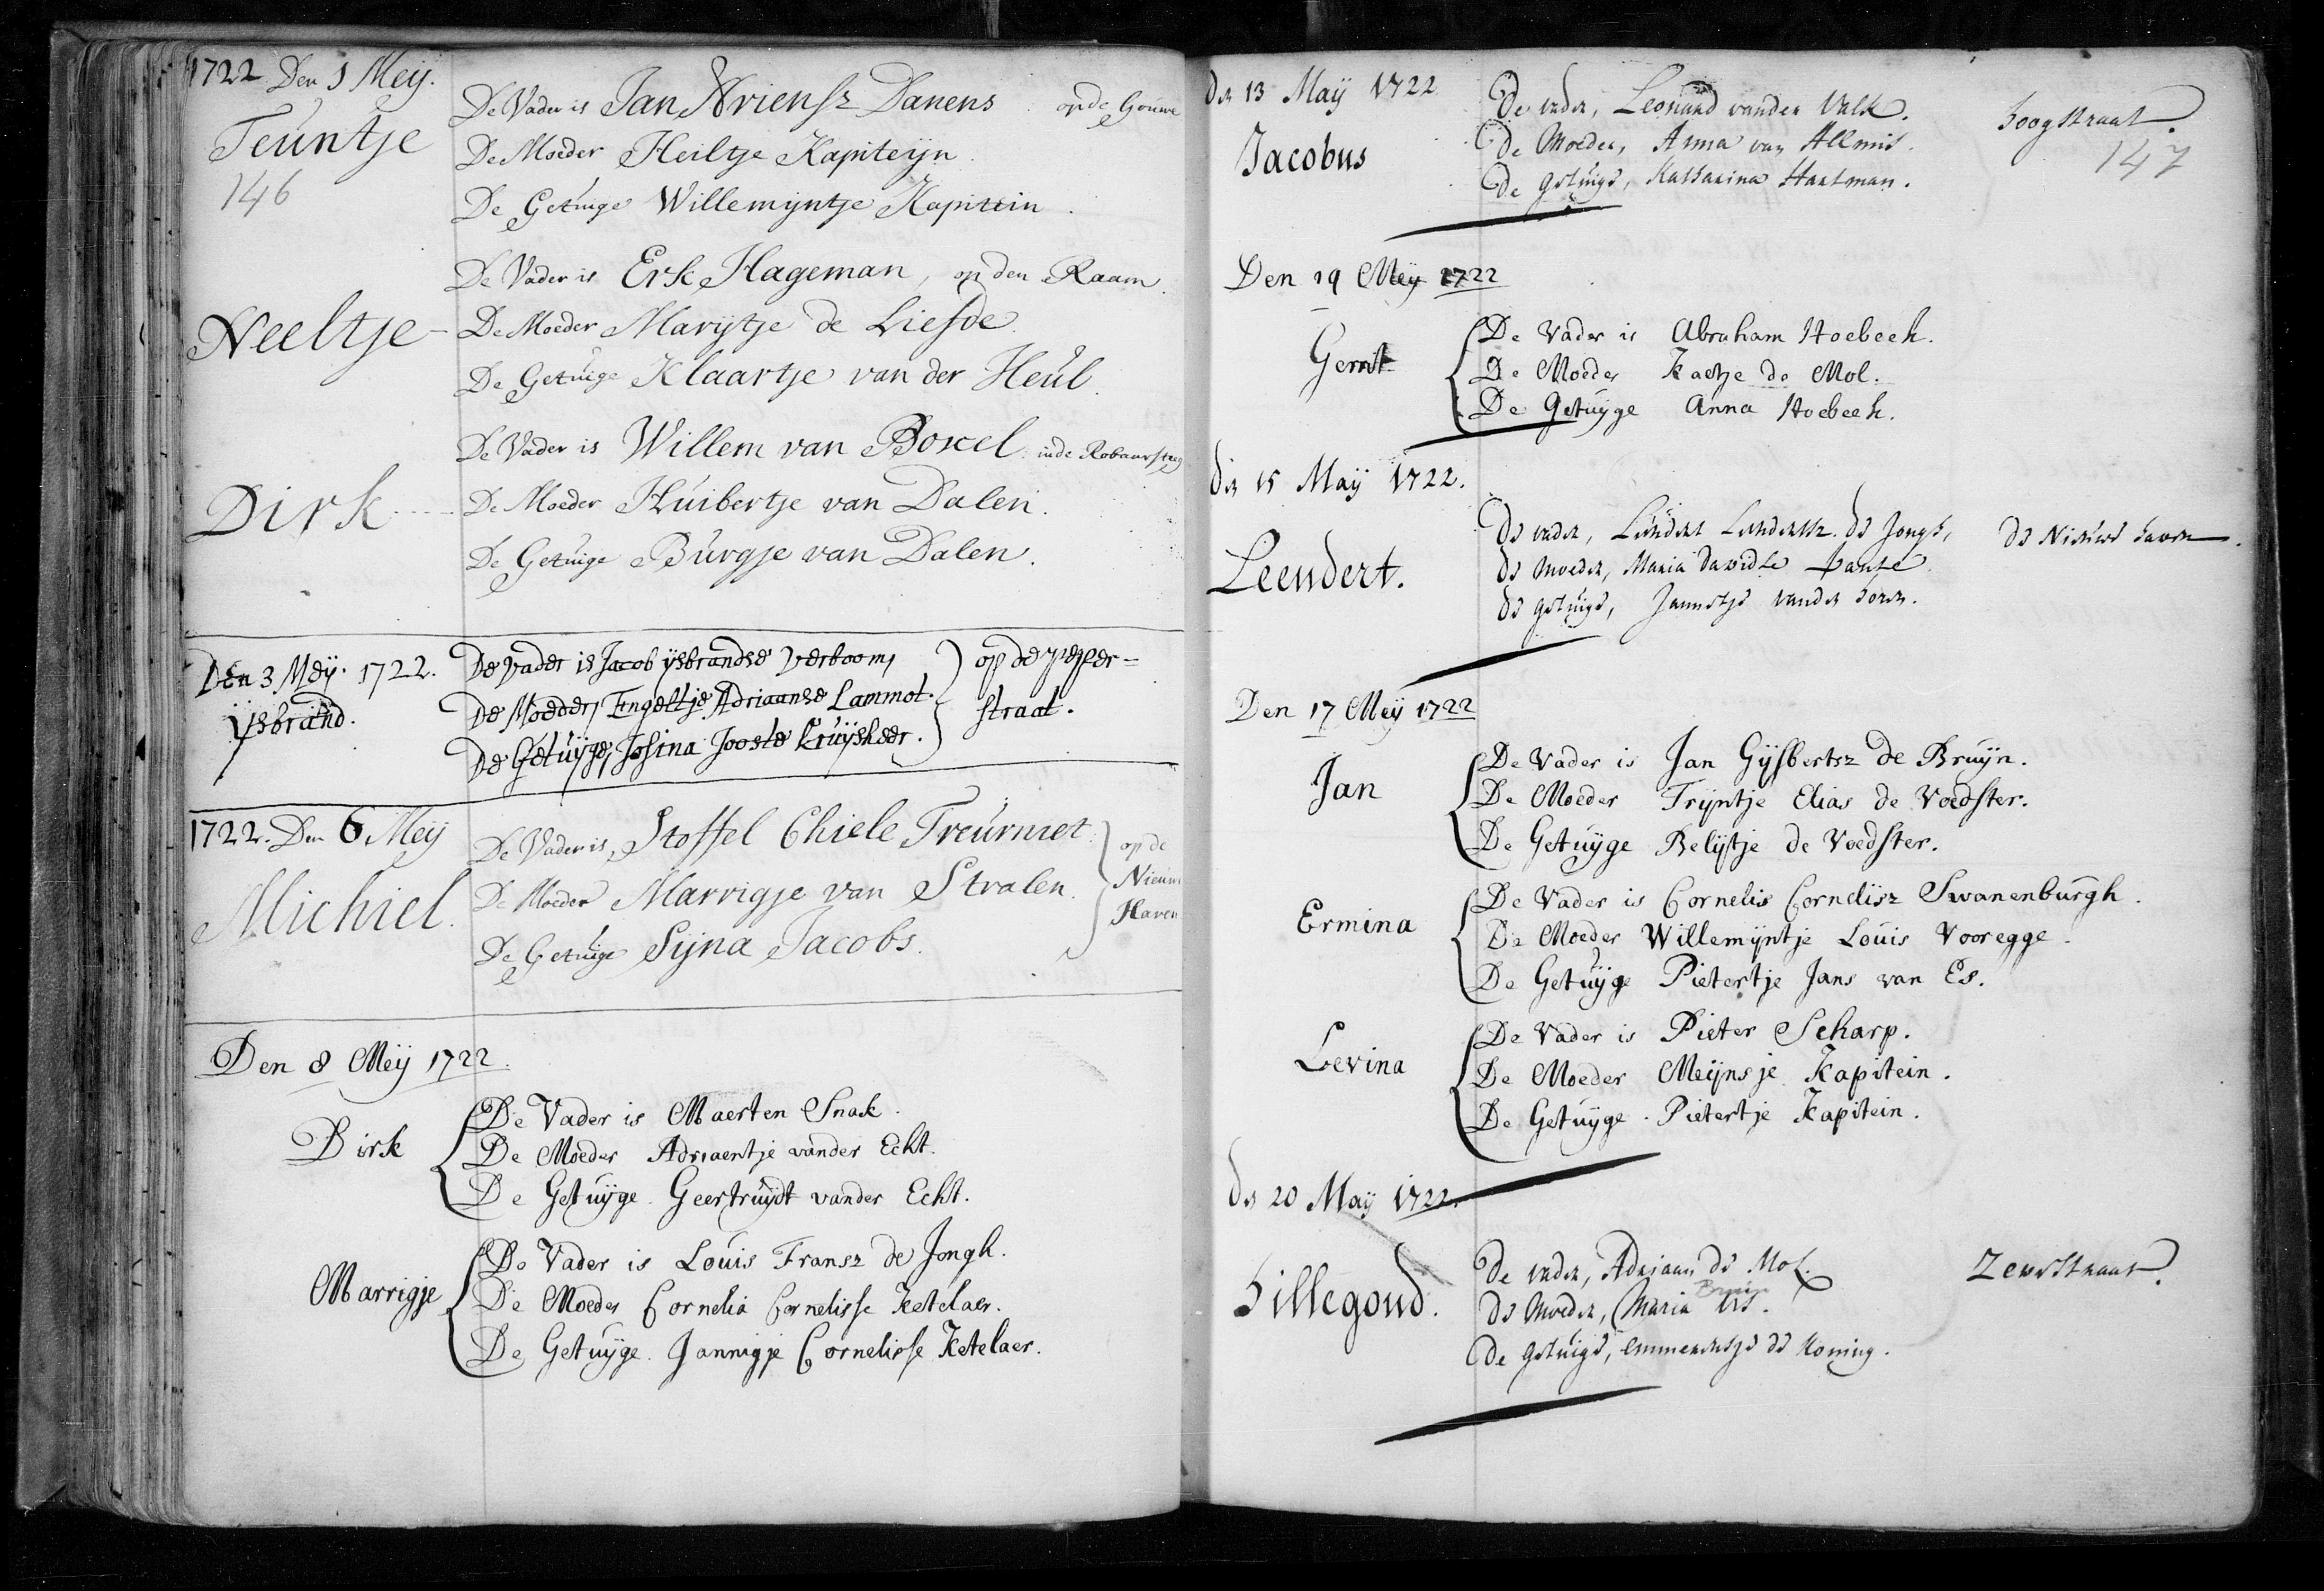 1722 Den 1 Meij.
Teuntje
146
De Vader is Jan Ariensz Danens op de Gouwe
De Moeder Heiltje Kapiteijn
De Getuige Willemijntje Kapitein
De Vader is Erk Hageman, op den Raam
Neeltje - De Moeder Marijtje de Liefde
De Getuige Klaartje van der Heul.
De Vader is Willem van Boxel. inde Robaarsteeg
Dirk - De Moeder Huibertje van Dalen.
De Getuige Burgje van Dalen.
Den 3 Meij. 1722.
Ysbrand.
De Vader is Jacob ysbrandse Verboom,
De Moeder, Engeltje Adriaanse Lammot.
De Getuijge, Josina Jooste Kruijsheer.
op de peper=
straat.
1722. Den 6 Meij
Michiel.
De Vader is, Stoffel Chiele Treurniet
De Moeder Marrigje van Stralen.
De Getuige Sijna Jacobs.
op de
Nieuw
Haven
Den 8 Meij 1722.
Dirk
De Vader is Maerten Snak.
De Moeder Adriaentje vander Echt.
De Getuijge Geertruijdt vander Echt.
Marrigje
De Vader is Louis Fransz de Jongh.
De Moeder Cornelia Cornelisse Ketelaer.
De Getuijge. Jannigje Cornelisse Ketelaer.
den 13 Maij 1722
Jacobus
De vader, Leonard vanden Valk.
De Moeder, Anna van
De getuige, Katharina Hartman.
hoogstraat.
147
Den 19 Meij 1722
Gerrit
De Vader is Abraham Hoebeek.
De Moeder Kaetje de Mol.
De Getuijge Anna Hoebeek.
den 15 Maij 1722.
Leendert.
de vader, Leendert Leendertsz. de Jonge,
de Moeder, Maria Davidse
de getuige, Jannetje vander
de Nieuwe haven.
Den 17 Meij 1722
Jan
De Vader is Jan Gijsbertsz de Bruijn.
De Moeder Trijntje Elias de Voedster.
De Getuijge Belijtje de Voedster.
Ermina
De Vader is Cornelis Cornelisz Swanenburgh.
De Moeder Willemijntje Louis Vooregge.
De Getuijge Pietertje Jans van Es.
Levina
De Vader is Pieter Scharp.
De Moeder Meijnsje Kapitein.
De Getuijge. Pietertje Kapitein.
den 20 Maij 1722.
Hillegond.
De vader, Adriaan de Mol.
de Moeder, Maria
De getuige, Emmerentje de Koning.
Zeugstraat.